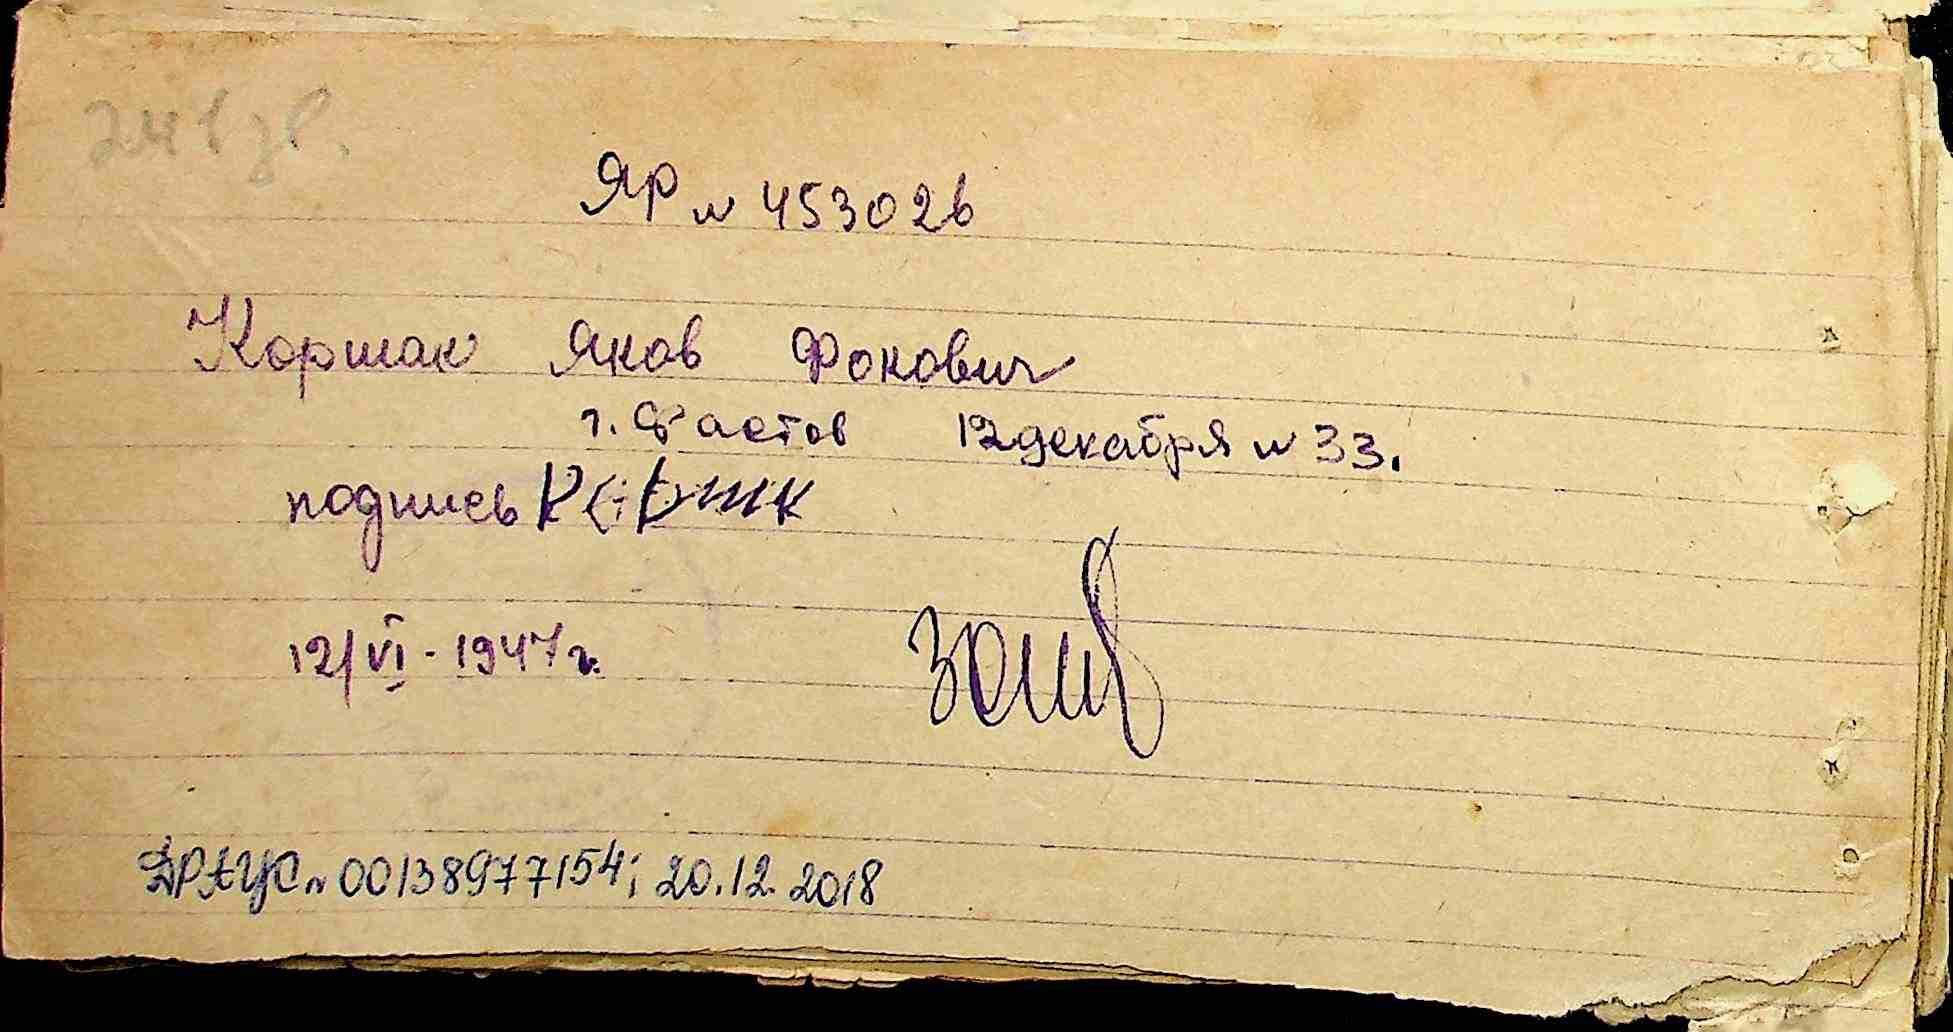 241 зв.
ЯР № 453026
Коршак Яков Фокович
г. Фастов 12 декабря № 33.
подпись
12/VI - 1947 г.
ДРАЦС № 00138977154; 20.12.2018